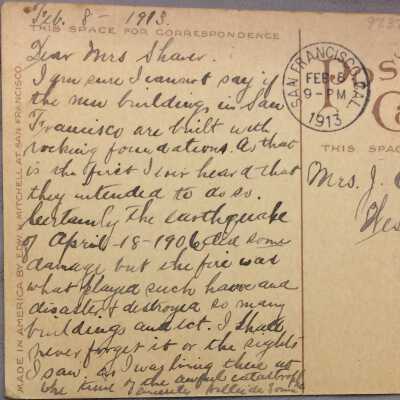 Feb. 8 - 1913.
THIS SPACE FOR CORRESPONDENCE
Dear Mrs Shaver.
I am sure I cannot say if
the new buildings in San
Francisco are built with
rocking foundations. As that
is the first I ever heard that
they intended to do so.
Certainly the earthquake
of April-18-1906 did some
damage but the fire was
what played such havoc and
disaster & destroyed so many
buildings and ect. I shall
never forget it or the sights
I saw. as I was living there at
the time of the awful catastrophe
Sincerely
MADE IN AMERICA BY EDW. H. MITCHELL AT SAN FRANCISCO
SAN FRANCISCO, CAL.
FEB 8
9-PM
1913
Pos
Ca
THIS SPAC
Mrs. J.
Wes